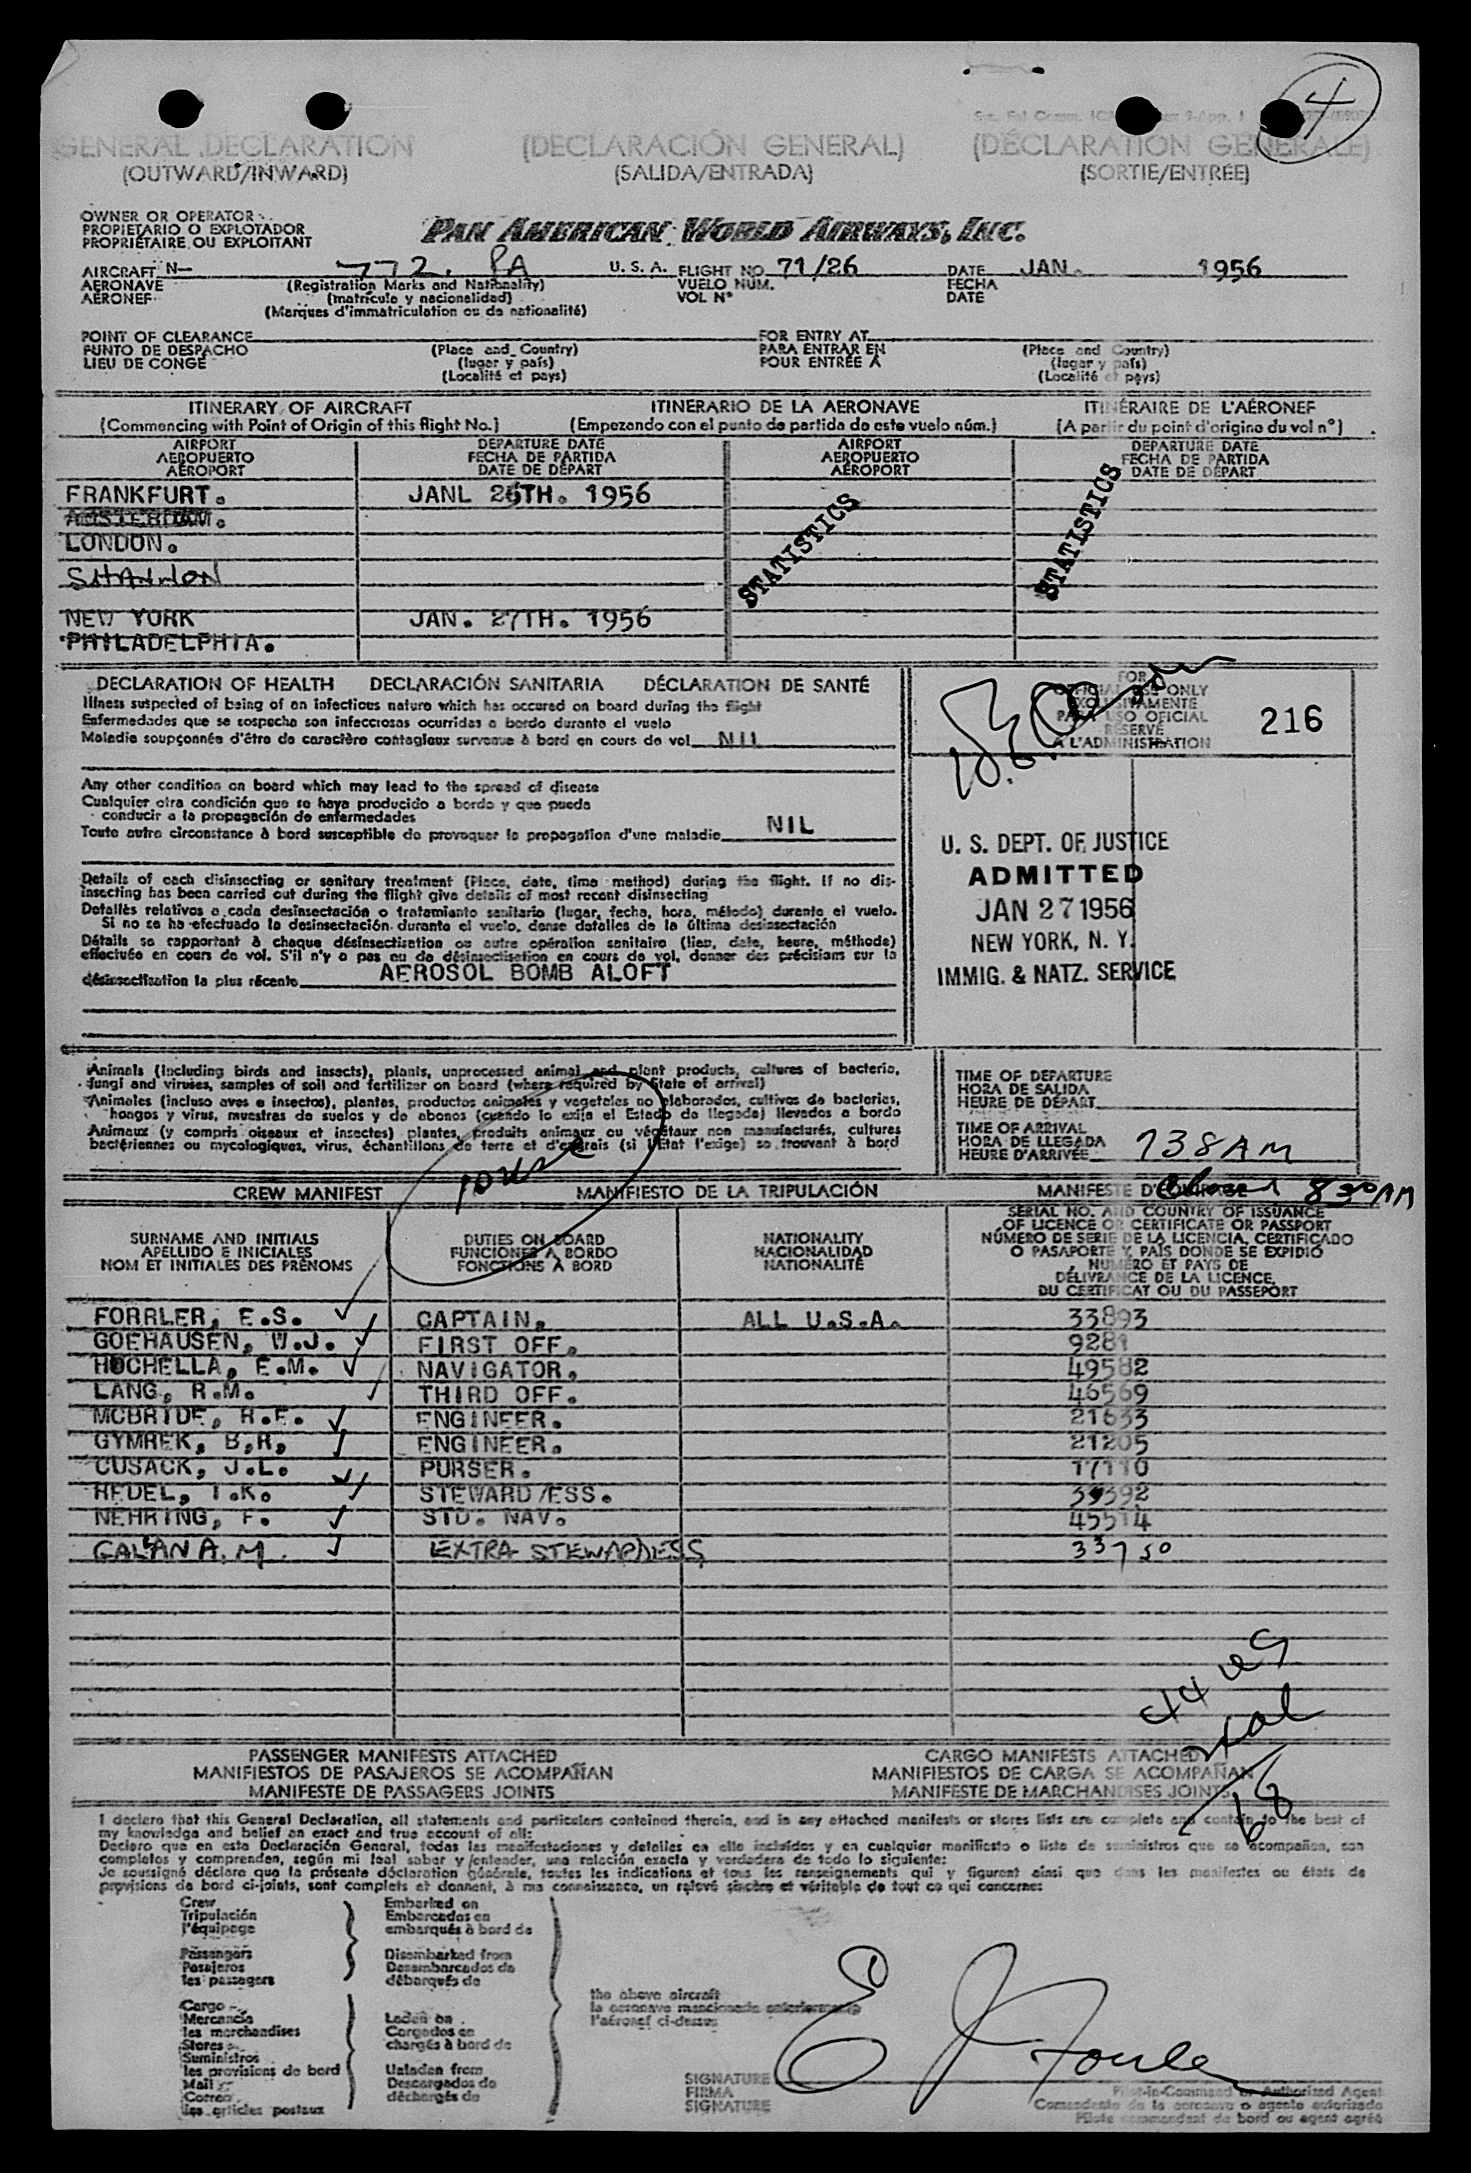 4
GENERAL DECLARATION (DECLARACIÓN GENERAL) (DÉCLARATION GÉNÉRALE)
(OUTWARD/INWARD) (SALIDA/ENTRADA) (SORTIE/ENTRÉE)
OWNER OR OPERATOR
PROPIETARIO O EXPLOTADOR
PROPRIÉTAIRE OU EXPLOITANT
PAN AMERICAN WORLD AIRWAYS, INC.
AIRCRAFT N- 772. PA U. S. A. FLIGHT NO. 71/26 DATE JAN. 1956
AERONAVE (Registration Marks and Nationality) VUELO NÚM. FECHA
AÉRONEF (matrícula y nacionalidad) VOL N° DATE
(Marques d'immatriculation ou de nationalité)
POINT OF CLEARANCE FOR ENTRY AT
PUNTO DE DESPACHO (Place and Country) PARA ENTRAR EN (Place and Country)
LIEU DE CONGÉ (lugar y país) POUR ENTRÉE À (lugar y país)
(Localité et pays) (Localité et pays)
ITINERARY OF AIRCRAFT ITINERARIO DE LA AERONAVE ITINÉRAIRE DE L'AÉRONEF
(Commencing with Point of Origin of this flight No.) (Empezando con el punto de partida de este vuelo núm.) (A partir du point d'origine du vol n°)
AIRPORT DEPARTURE DATE AIRPORT DEPARTURE DATE
AEROPUERTO FECHA DE PARTIDA AEROPUERTO FECHA DE PARTIDA
AÉROPORT DATE DE DÉPART AÉROPORT DATE DE DÉPART
FRANKFURT. JANL 26TH. 1956
AMSTERDAM.
LONDON.
SHANNON
STATISTICS STATISTICS
NEW YORK JAN. 27TH. 1956
PHILADELPHIA.
DECLARATION OF HEALTH DECLARACIÓN SANITARIA DÉCLARATION DE SANTÉ
Illness suspected of being of an infectious nature which has occured on board during the flight
Enfermedades que se sospecha son infecciosas ocurridas a bordo durante el vuelo
Maladie soupçonnée d'être de caractère contagieux survenue à bord en cours de vol NIL
FOR
OFFICIAL USE ONLY
EXCLUSIVAMENTE
PARA USO OFICIAL
RÉSERVÉ
A L'ADMINISTRATION
216
Any other condition on board which may lead to the spread of disease
Cualquier otra condición que se haya producido a bordo y que pueda
conducir a la propagación de enfermedades
Toute autre circonstance à bord susceptible de provoquer la propagation d'une maladie NIL
U. S. DEPT. OF JUSTICE
ADMITTED
JAN 27 1956
NEW YORK, N. Y.
IMMIG. & NATZ. SERVICE
Details of each disinsecting or sanitary treatment (Place, date, time method) during the flight. If no disinsecting
insecting has been carried out during the flight give details of most recent disinsecting
Detallès relativos a cada desinsectación o tratamiento sanitario (lugar, fecha, hora, método) durante el vuelo.
Si no se ha efectuado la desinsectación durante el vuelo, dense detalles de la última desinsectación
Détails se rapportant à chaque désinsectisation ou autre opération sanitaire (lieu, date, heure, méthode)
effectuée en cours de vol. S'il n'y a pas eu de désinsectisation en cours de vol, donner des précisions sur la
désinsectisation la plus récente AEROSOL BOMB ALOFT
Animals (including birds and insects), plants, unprocessed animal and plant products, cultures of bacteria,
fungi and viruses, samples of soil and fertilizer on board (where required by State of arrival)
Animales (incluso aves e insectos), plantas, productos animales y vegetales no elaborados, cultivos de bacterias,
hongos y virus, muestras de suelos y de abonos (cuando lo exija el Estado de llegada) llevados a bordo
Animaux (y compris oiseaux et insectes) plantes, produits animaux ou végétaux non manufacturés, cultures
bactériennes ou mycologiques, virus, échantillons de terre et d'engrais (si l'État l'exige) se trouvant à bord
TIME OF DEPARTURE
HORA DE SALIDA
HEURE DE DÉPART
TIME OF ARRIVAL
HORA DE LLEGADA
HEURE D'ARRIVÉE 738 AM
CREW MANIFEST MANIFIESTO DE LA TRIPULACIÓN MANIFESTE D'ÉQUIPAGE 8 30 AM
SURNAME AND INITIALS DUTIES ON BOARD NATIONALITY
APELLIDO E INICIALES FUNCIONES A BORDO NACIONALIDAD
NOM ET INITIALES DES PRÉNOMS FONCTIONS À BORD NATIONALITÉ
SERIAL NO. AND COUNTRY OF ISSUANCE
OF LICENCE OR CERTIFICATE OR PASSPORT
NÚMERO DE SERIE DE LA LICENCIA, CERTIFICADO
O PASAPORTE Y PAÍS DONDE SE EXPIDIÓ
NUMÉRO ET PAYS DE
DÉLIVRANCE DE LA LICENCE,
DU CERTIFICAT OU DU PASSEPORT
FORRLER, E.S. CAPTAIN. ALL U.S.A. 33893
GOEHAUSEN, W.J. FIRST OFF. 9281
HOCHELLA, E.M. NAVIGATOR. 49582
LANG, R.M. THIRD OFF. 46569
MCBRIDE, H.E. ENGINEER. 21633
GYMREK, B.R. ENGINEER. 21205
CUSACK, J.L. PURSER. 17110
HEDEL, I.K. STEWARD/ESS. 39392
NEHRING, F. STD. NAV. 45514
GALAN A. M. EXTRA STEWARDESS 33750
44 US
68
PASSENGER MANIFESTS ATTACHED CARGO MANIFESTS ATTACHED
MANIFIESTOS DE PASAJEROS SE ACOMPAÑAN MANIFIESTOS DE CARGA SE ACOMPAÑAN
MANIFESTE DE PASSAGERS JOINTS MANIFESTE DE MARCHANDISES JOINTS
I declare that this General Declaration, all statements and particulars contained therein, and in any attached manifests or stores lists are complete and contain to the best of
my knowledge and belief an exact and true account of all:
Declaro que en esta Declaración General, todas las manifestaciones y detalles en ella incluídos y en cualquier manifiesto o lista de suministros que se acompañan, son
completos y comprenden, según mi leal saber y entender, una relación exacta y verdadera de todo lo siguiente:
Je soussigné déclare que la présente déclaration générale, toutes les indications et tous les renseignements qui y figurent ainsi que dans les manifestes ou états de
provisions de bord ci-joints, sont complets et donnent, à ma connaissance, un relevé sincère et véritable de tout ce qui concerne:
Crew Embarked on
Tripulación Embarcados en
l'équipage embarqués à bord de
Passengers Disembarked from
Pasajeros Desembarcados de
les passagers débarqués de
the above aircraft
la aeronave mencionada anteriormente
l'aéronef ci-dessus
Cargo
Mercancía Laden on
les marchandises Cargados en
Stores chargés à bord de
Suministros
les provisions de bord Unladen from
Mail Descargados de
Correo déchargés de
les articles postaux
SIGNATURE
FIRMA
SIGNATURE
Pilot-in-Command or Authorized Agent
Comandante de la aeronave o agente autorizado
Pilote commandant de bord ou agent agréé